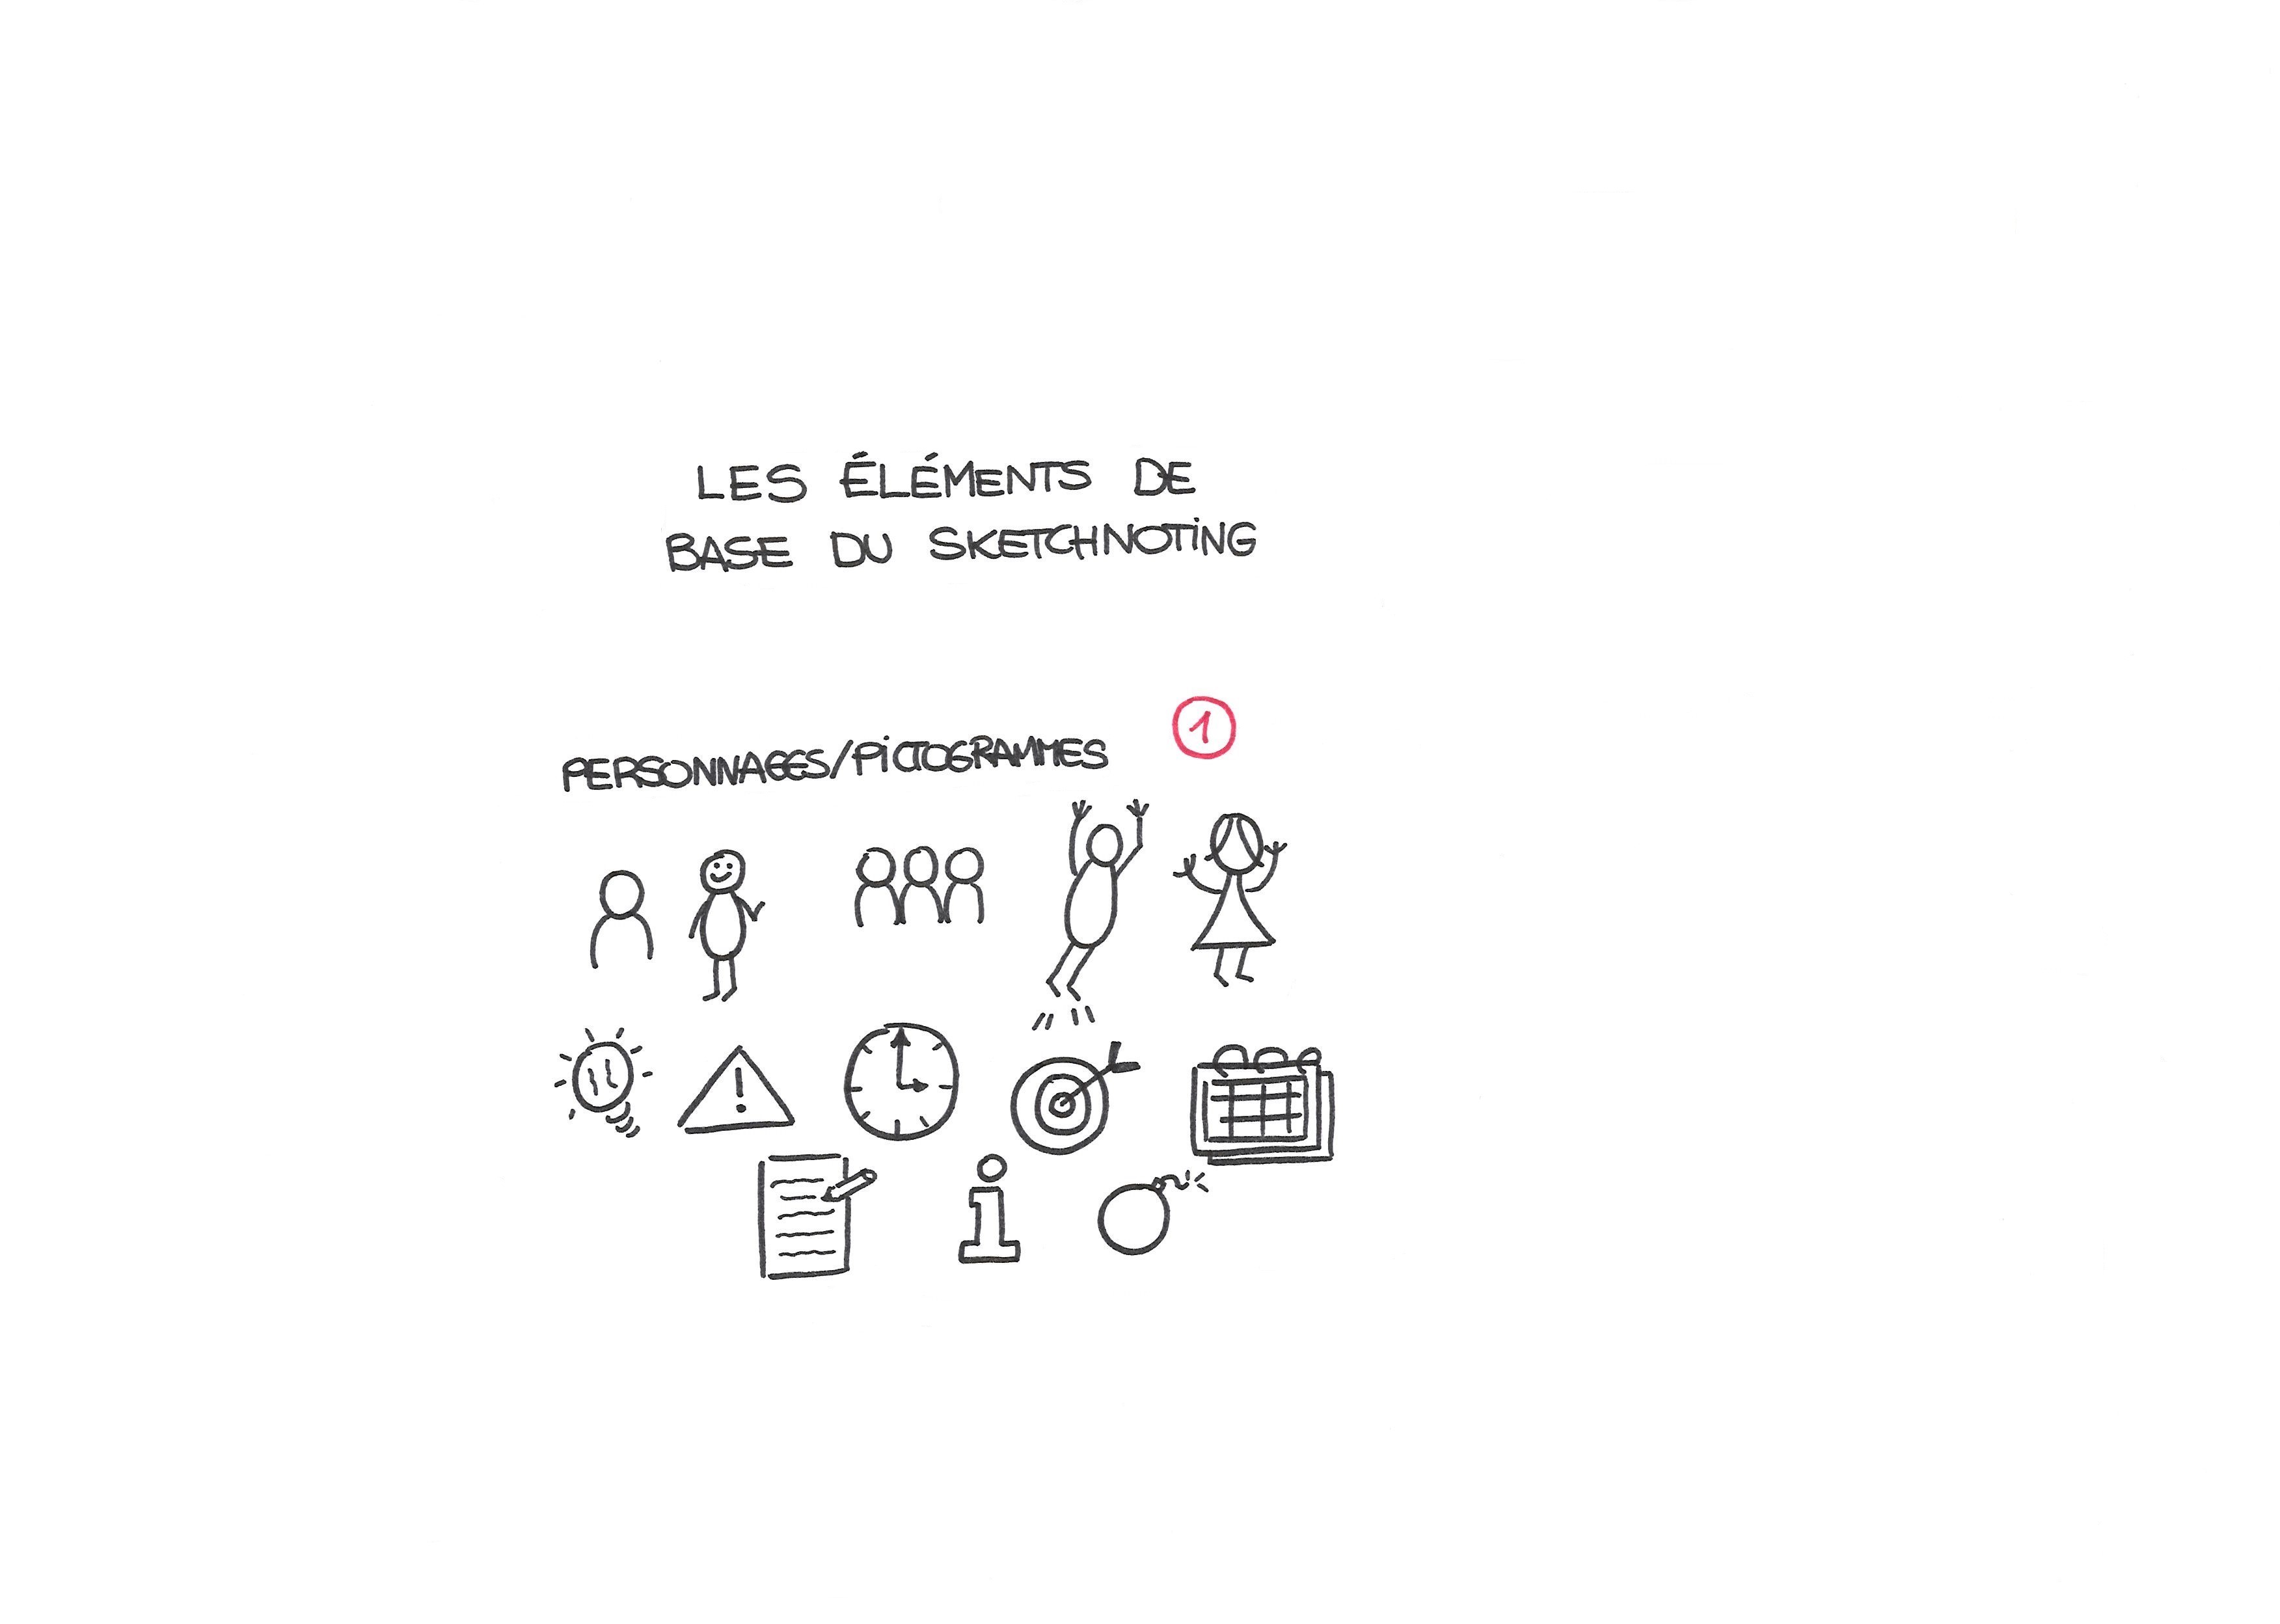 LES ÉLÉMENTS DE
BASE DU SKETCHNOTING
1
PERSONNAGES/PICTOGRAMMES
!
i